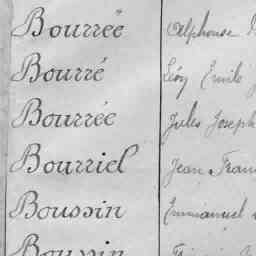 Bourreé Alphonse
Bourré Léon Emile
Bourrée Jules Joseph
Bourriel Jean
Boussin Emmanuel
Boussin